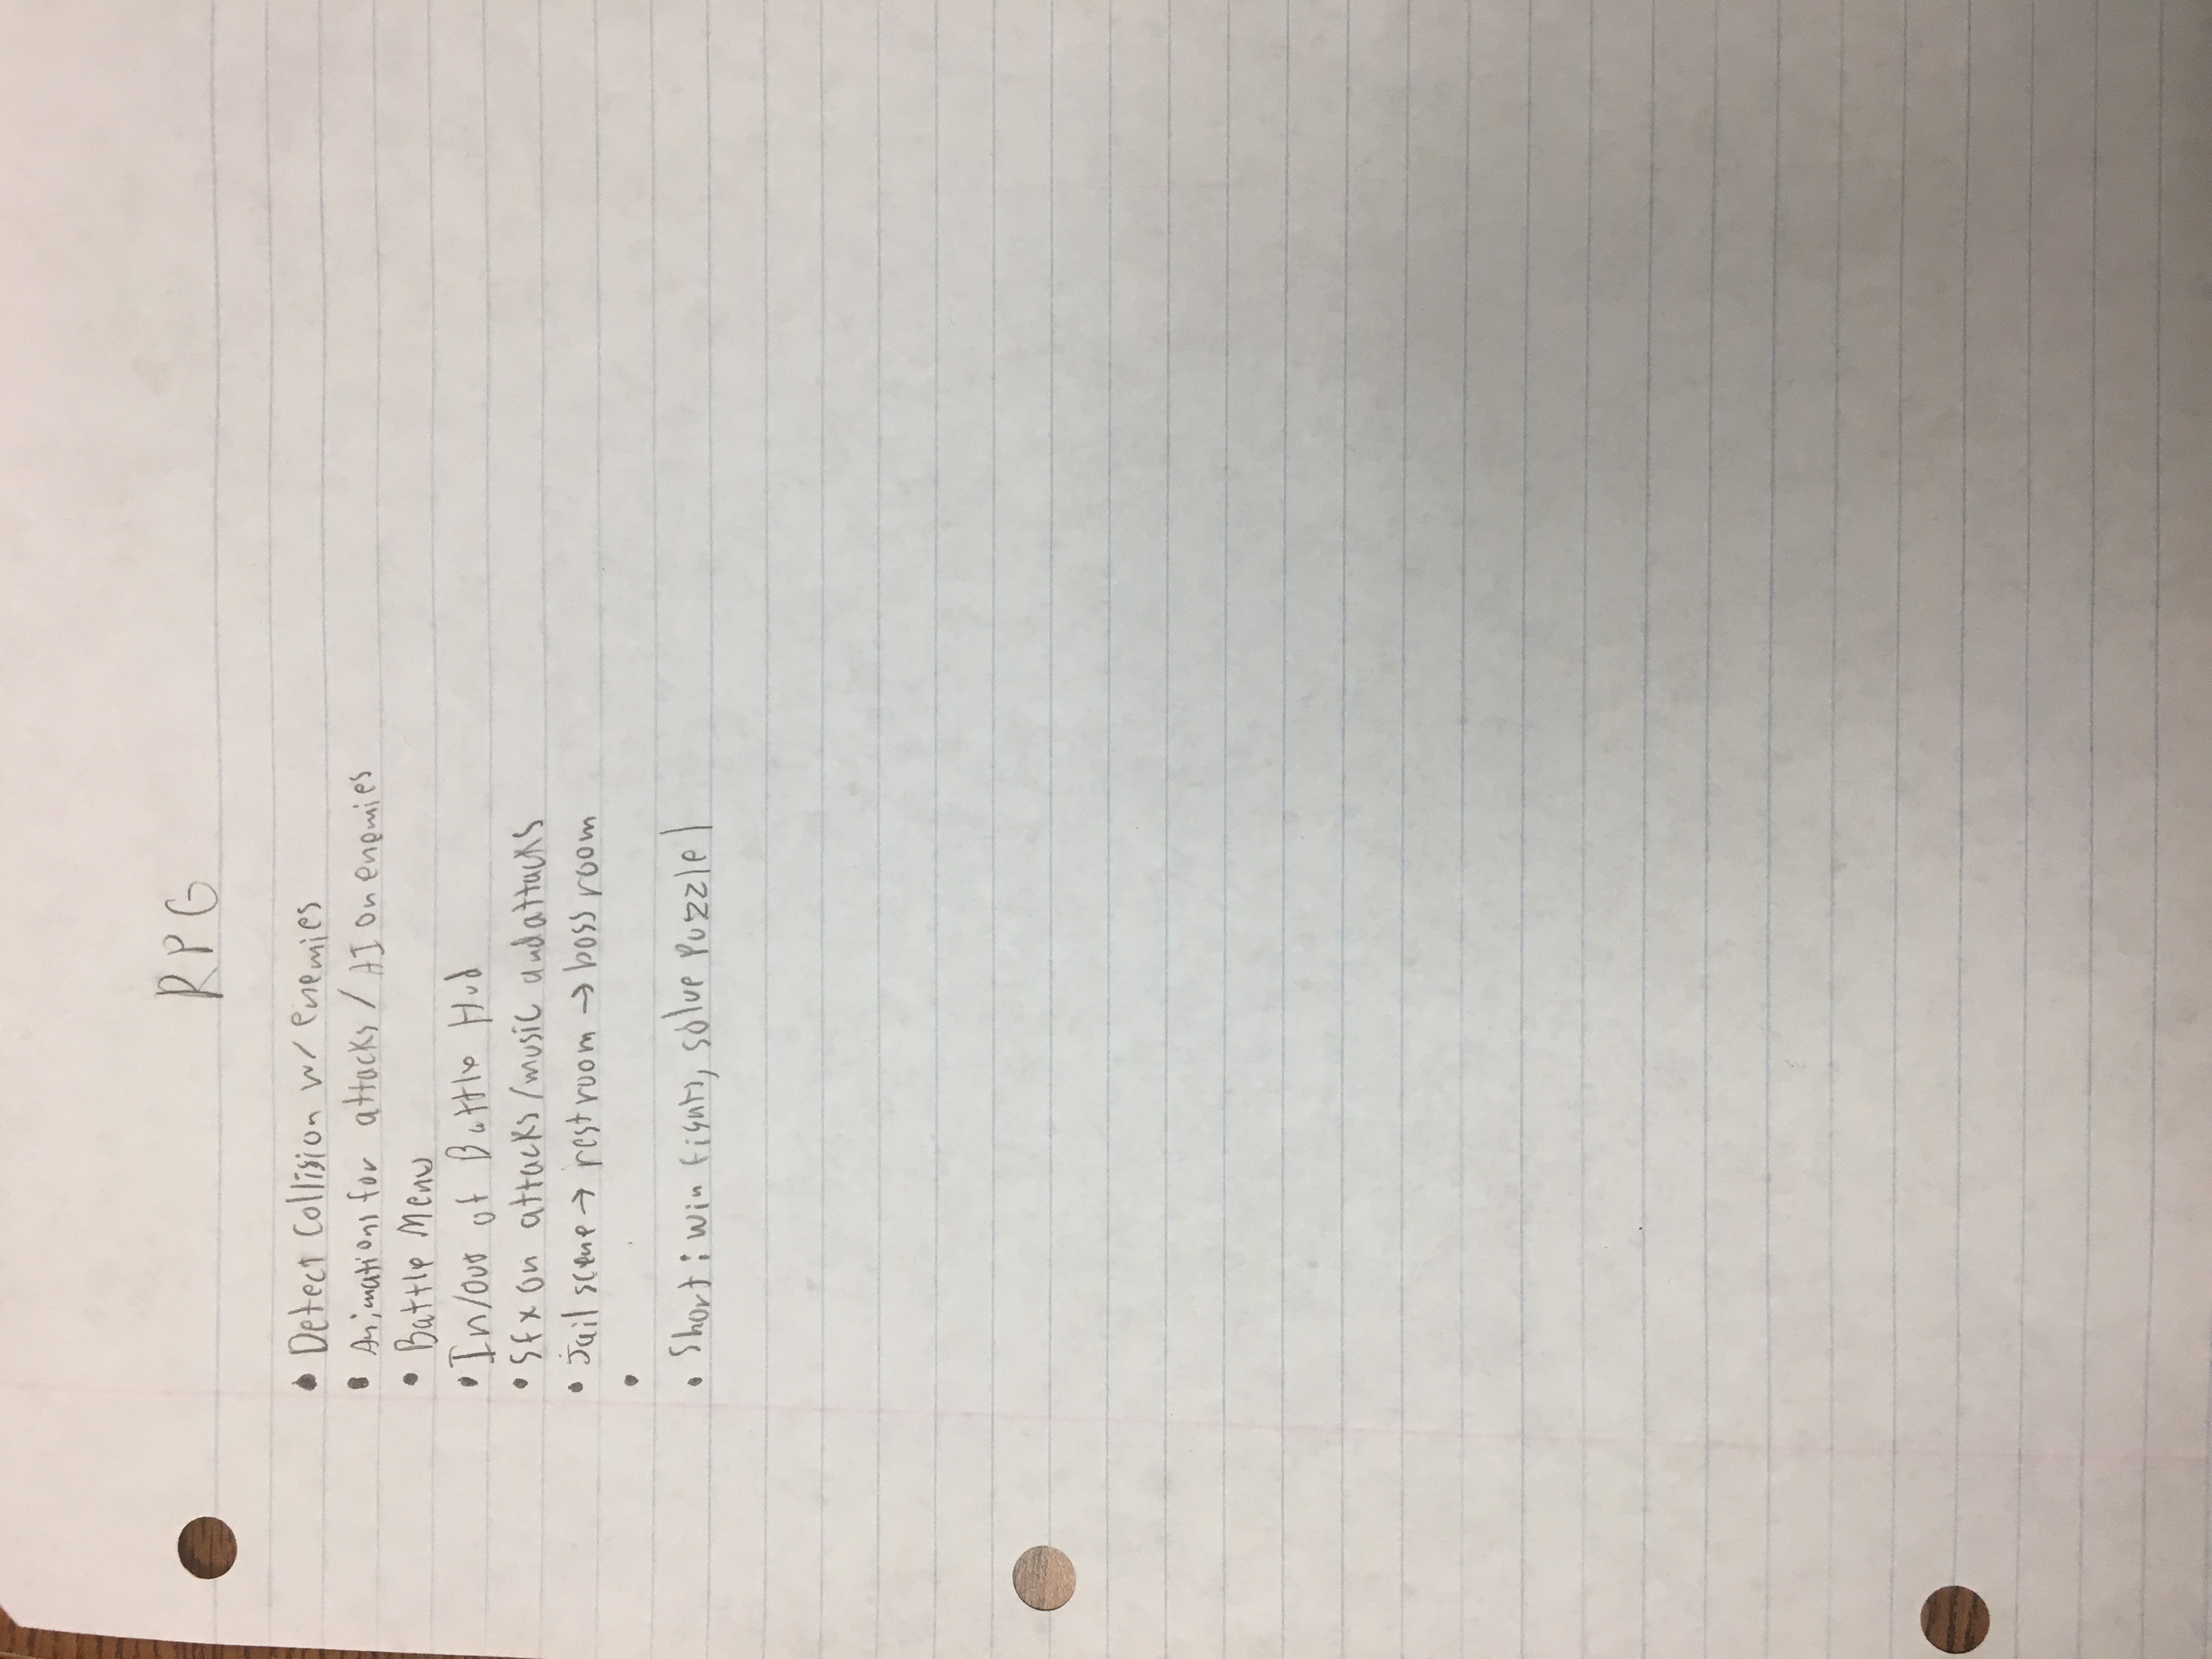 RPG
• Detect Collision w/ enemies
• Animations for attacks / AI on enemies
• Battle Menu
• In/Out of Battle Hud
• Sfx on attacks/music and attacks
• Jail scene → rest room → boss room
•
• Short: win fights, solve puzzle 1